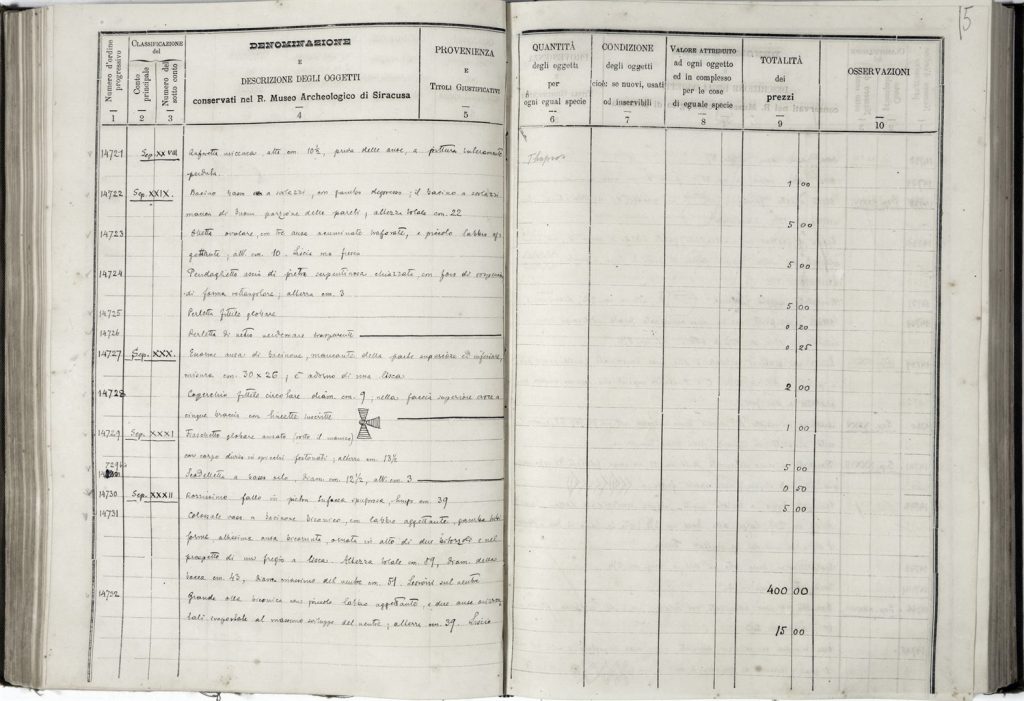 15
Numero d'ordine progressivo
CLASSIFICAZIONE del
Conto principale
Numero del sotto conto
DENOMINAZIONE
E
DESCRIZIONE DEGLI OGGETTI
conservati nel R. Museo Archeologico di Siracusa
PROVENIENZA
E
TITOLI GIUSTIFICATIVI
QUANTITÀ
degli oggetti
per
ogni egual specie
CONDIZIONE
degli oggetti
cioè: se nuovi, usati
od inservibili
VALORE ATTRIBUITO
ad ogni oggetto
ed in complesso
per le cose
di eguale specie
TOTALITÀ
dei
prezzi
OSSERVAZIONI
1 2 3 4 5 6 7 8 9 10
14721 Sep. XXVIII micenea, alta cm. 10½, priva delle anse, a pittura interamente Thapsos
perduta. 1 00
14722 Sep. XXIX. Bacino
di diam. porzione delle pareti; altezza totale cm. 22 5 00
14723 Olletta ovolare, con tre anse acuminate traforate, e piccolo labbro ag-
gettante; alt. cm. 10. Liscia 5 00
14724 Pendaglietto di pietra serpentinosa chiazzata, con foro di sospensione
di forma rettangolare; altezza cm. 3 5 00
14725 Perletta fittile globare 0 20
14726 Perletta di vetro verdemare trasparente 0 25
14727 Sep. XXX. Enorme ansa di bacinone, mancante della parte superiore ed inferiore,
misura cm. 30 x 26; è adorno di una lisca 2 00
14728 Coperchio fittile circolare diam. cm. 9; nella faccia superiore croce a
cinque braccia con lineette inscritte 1 00
14729 Sep. XXXI Fiaschetto globare ansato (rotto il manico)
con corpo diviso in spicchi festonati; altezza cm. 13½ 5 00
Scodelletta a diam. cm. 12½, alt. cm. 3 0 50
14730 Sep. XXXII Rozzissimo fallo in pietra tufacea spugnosa, lungo cm. 39 5 00
14731 Colossale vaso a bacinone biconico, con labbro aggettante,
forme, altissima ansa bicornuta, ornata in alto di due bitorzoli e nel
prospetto di un fregio a lisca. Altezza totale cm. 89, diam. della
bocca cm. 43, diam. massimo del ventre cm. 51. Lesioni sul ventre 400 00
14732 Grande olla biconica con piccolo labbro aggettante, e due anse orizzon-
tali impostate al massimo sviluppo del ventre; altezza cm. 39. Liscia 15 00